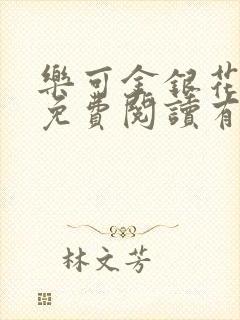 樂可金銀花
免費閱讀有
林文芳